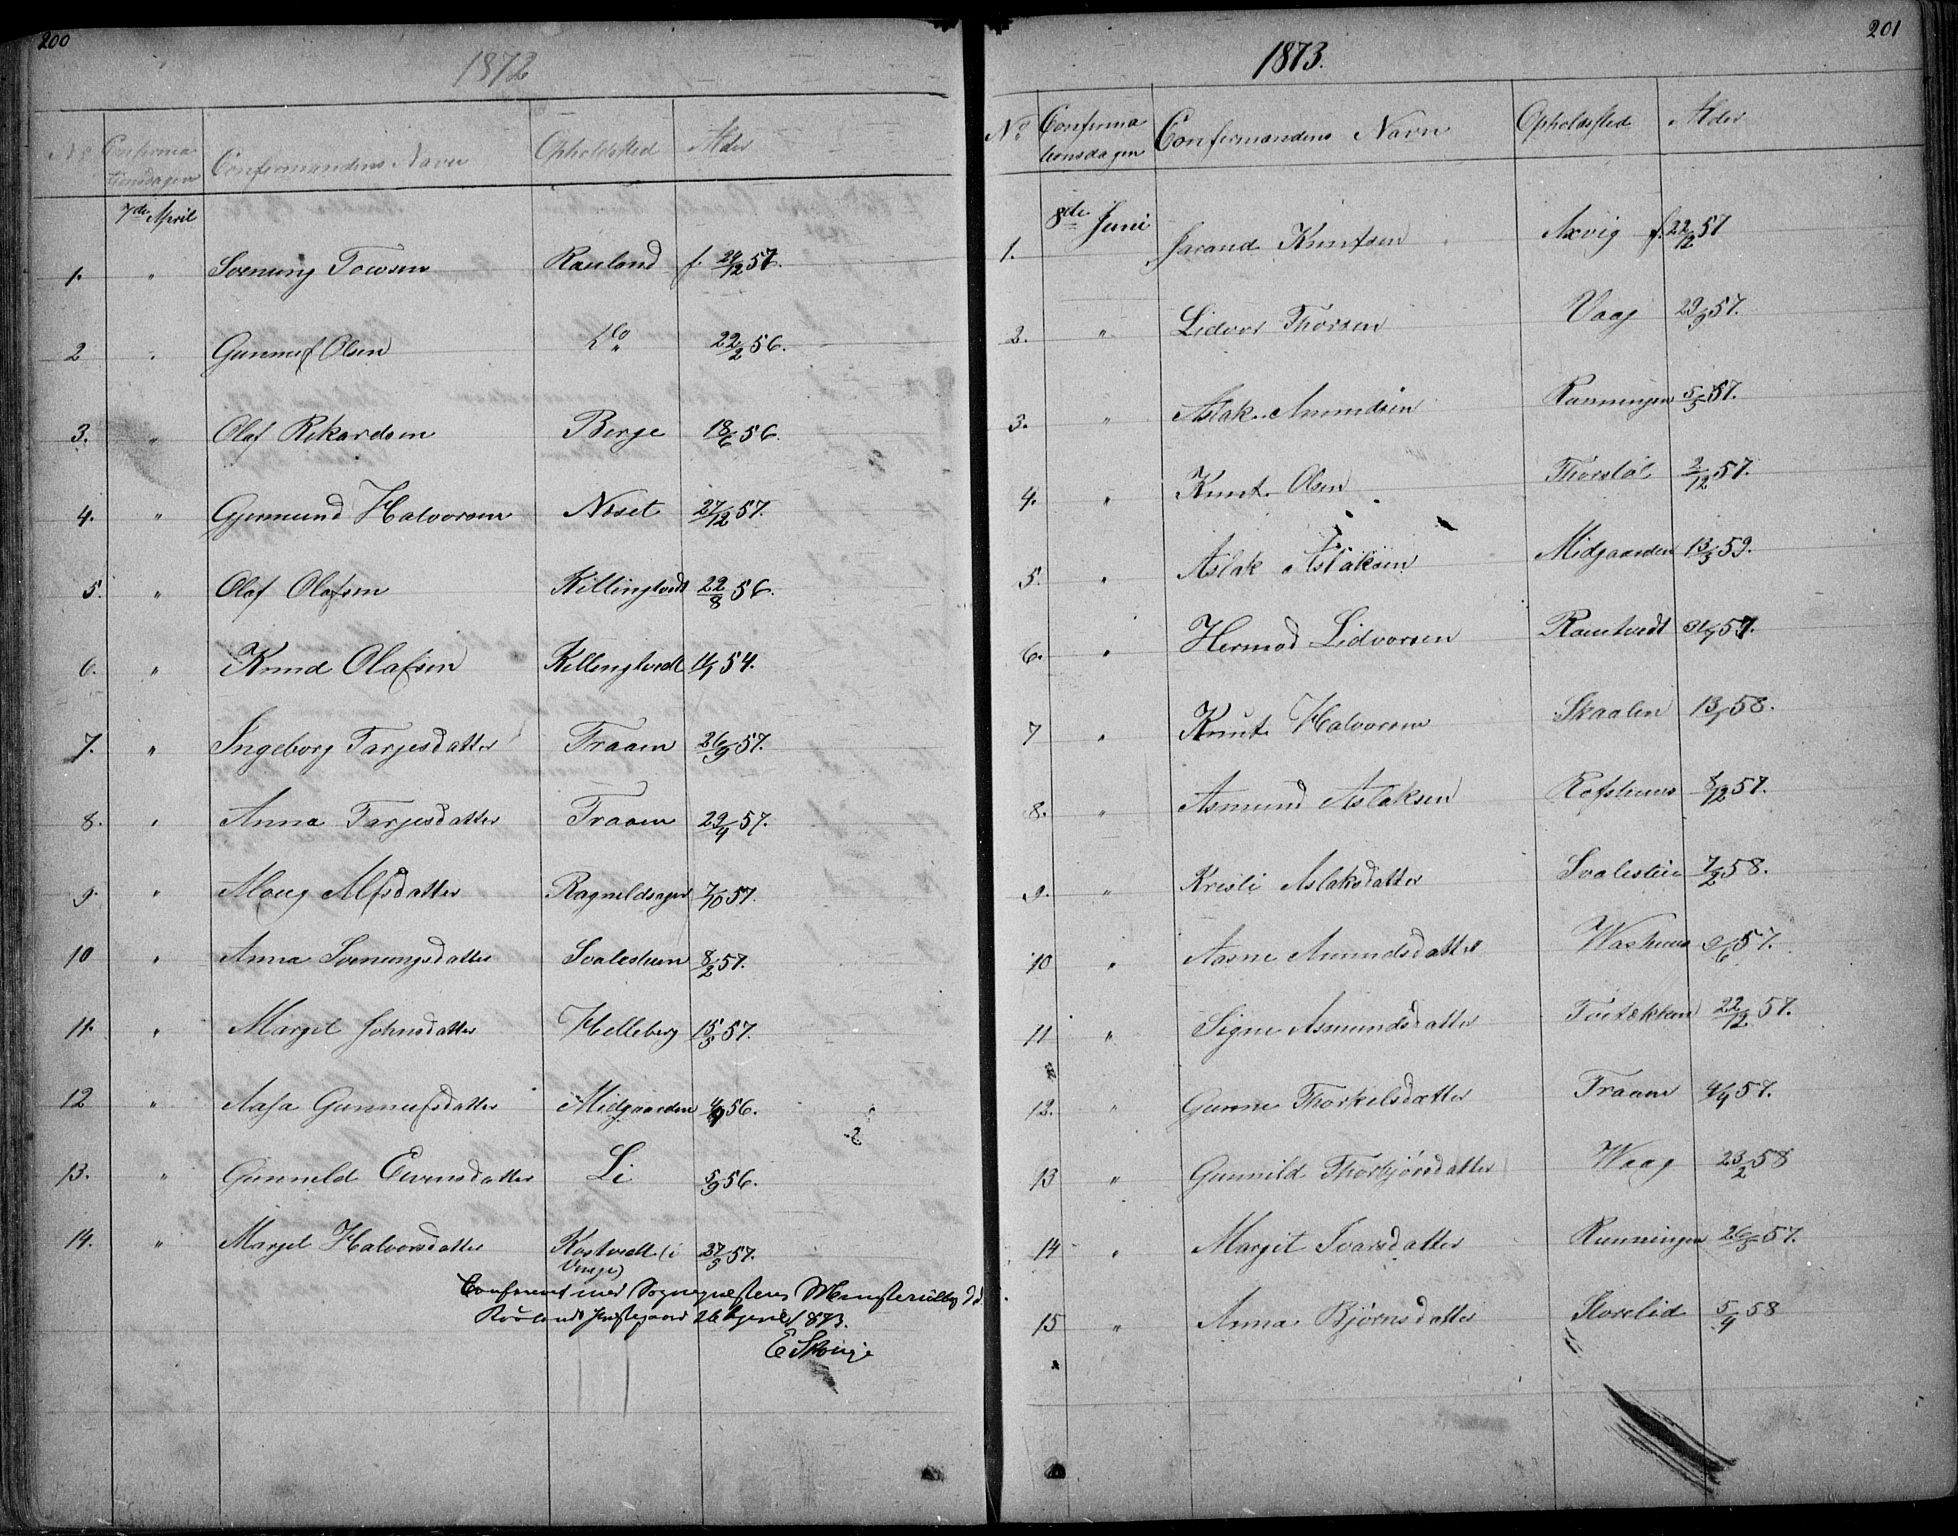 200
1872
No Confirmationsdagen Confirmandens Navn Opholdsted Alder
7de April
1. " Svenung Tovsen Rauland f. 24/12 57.
2 " Gunnuf Olsen Do " 22/2 56.
3. " Olaf Rikardsen Berge 18/6 56.
4. " Gjermund Halvorsen Neset 27/12 57.
5. " Olaf Olafsen Killingtvedt 22/8 56.
6. " Knud Olafsen Killingtvedt 54.
7. " Ingeborg Tarjesdatter Traaen 26/9 57.
8. " Anna Tarjesdatter Traaen 29/9 57.
9. " Alfsdatter Ragnildsager 7/10 57.
10 " Anna Svenungsdatter Svalesteen 8/2 57.
11. " Margit Johnsdatter Helleberg 15/5 57.
12 " Aase Gunnufsdatter Midgaarden 56.
13. " Gunneld Eivensdatter Li 5/9 56.
14. " Margit Halvorsdatter Kostvedt (i 27/5 57.
Vinje)
Conferent med Sognepræstens Ministerialbog
Præstegaard 26 1873.
E
201
1873.
No Confirmationsdagen Confirmandens Navn Opholdsted Alder
8de Juni
1. Jarand Knutsen Axvig f. 22/12 57
2. " Lidvor Thorsen Vaag 29/9 57.
3. " Aslak Amundsen Runningen 5/3 57.
4. " Knut Olsen Thorstøl 2/12 57.
5. " Aslak Aslaksen Midgaarden 13/3 59.
6. " Hermod Lidvorsen Rauntvedt 57.
7 " Knut Halvorsen Skaalen 58.
8. " Asmund Aslaksen Rofshuus 8/12 57.
9. " Kristi Aslaksdatter Svalestein 7/2 58.
10 " Aasne Amundsdatter Washuus 57.
11 " Signe Asmundsdatter 22/12 57.
12. " Gunne Thorkelsdatter Traaen 4/9 57.
13 " Gunnild Thorbjørsdatter Waag 23/2 58
14 " Margit Ivarsdatter Runningen 26/5 57.
15 " Anna Bjørnsdatter Storelid 5/4 58